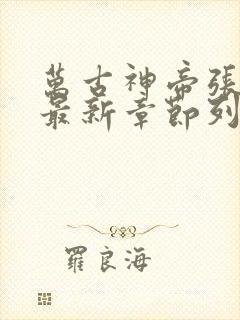 萬古神帝張
最新章節列
羅良海